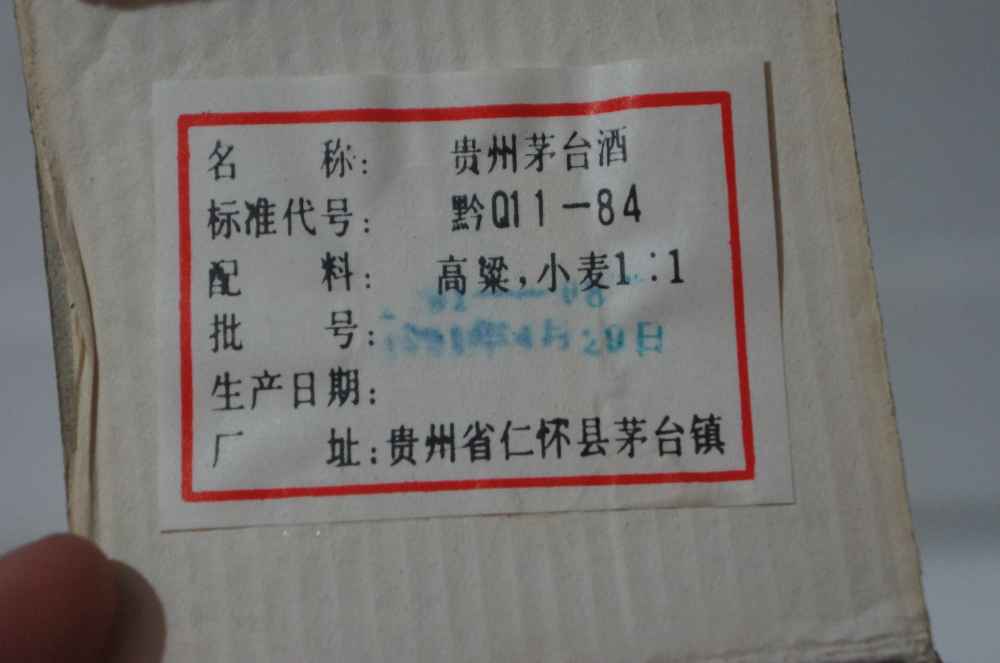 名 称: 贵州茅台酒
标准代号: 黔Q11-84
配 料: 高粱,小麦1:1
批 号:
日
生产日期:
厂 址:贵州省仁怀县茅台镇